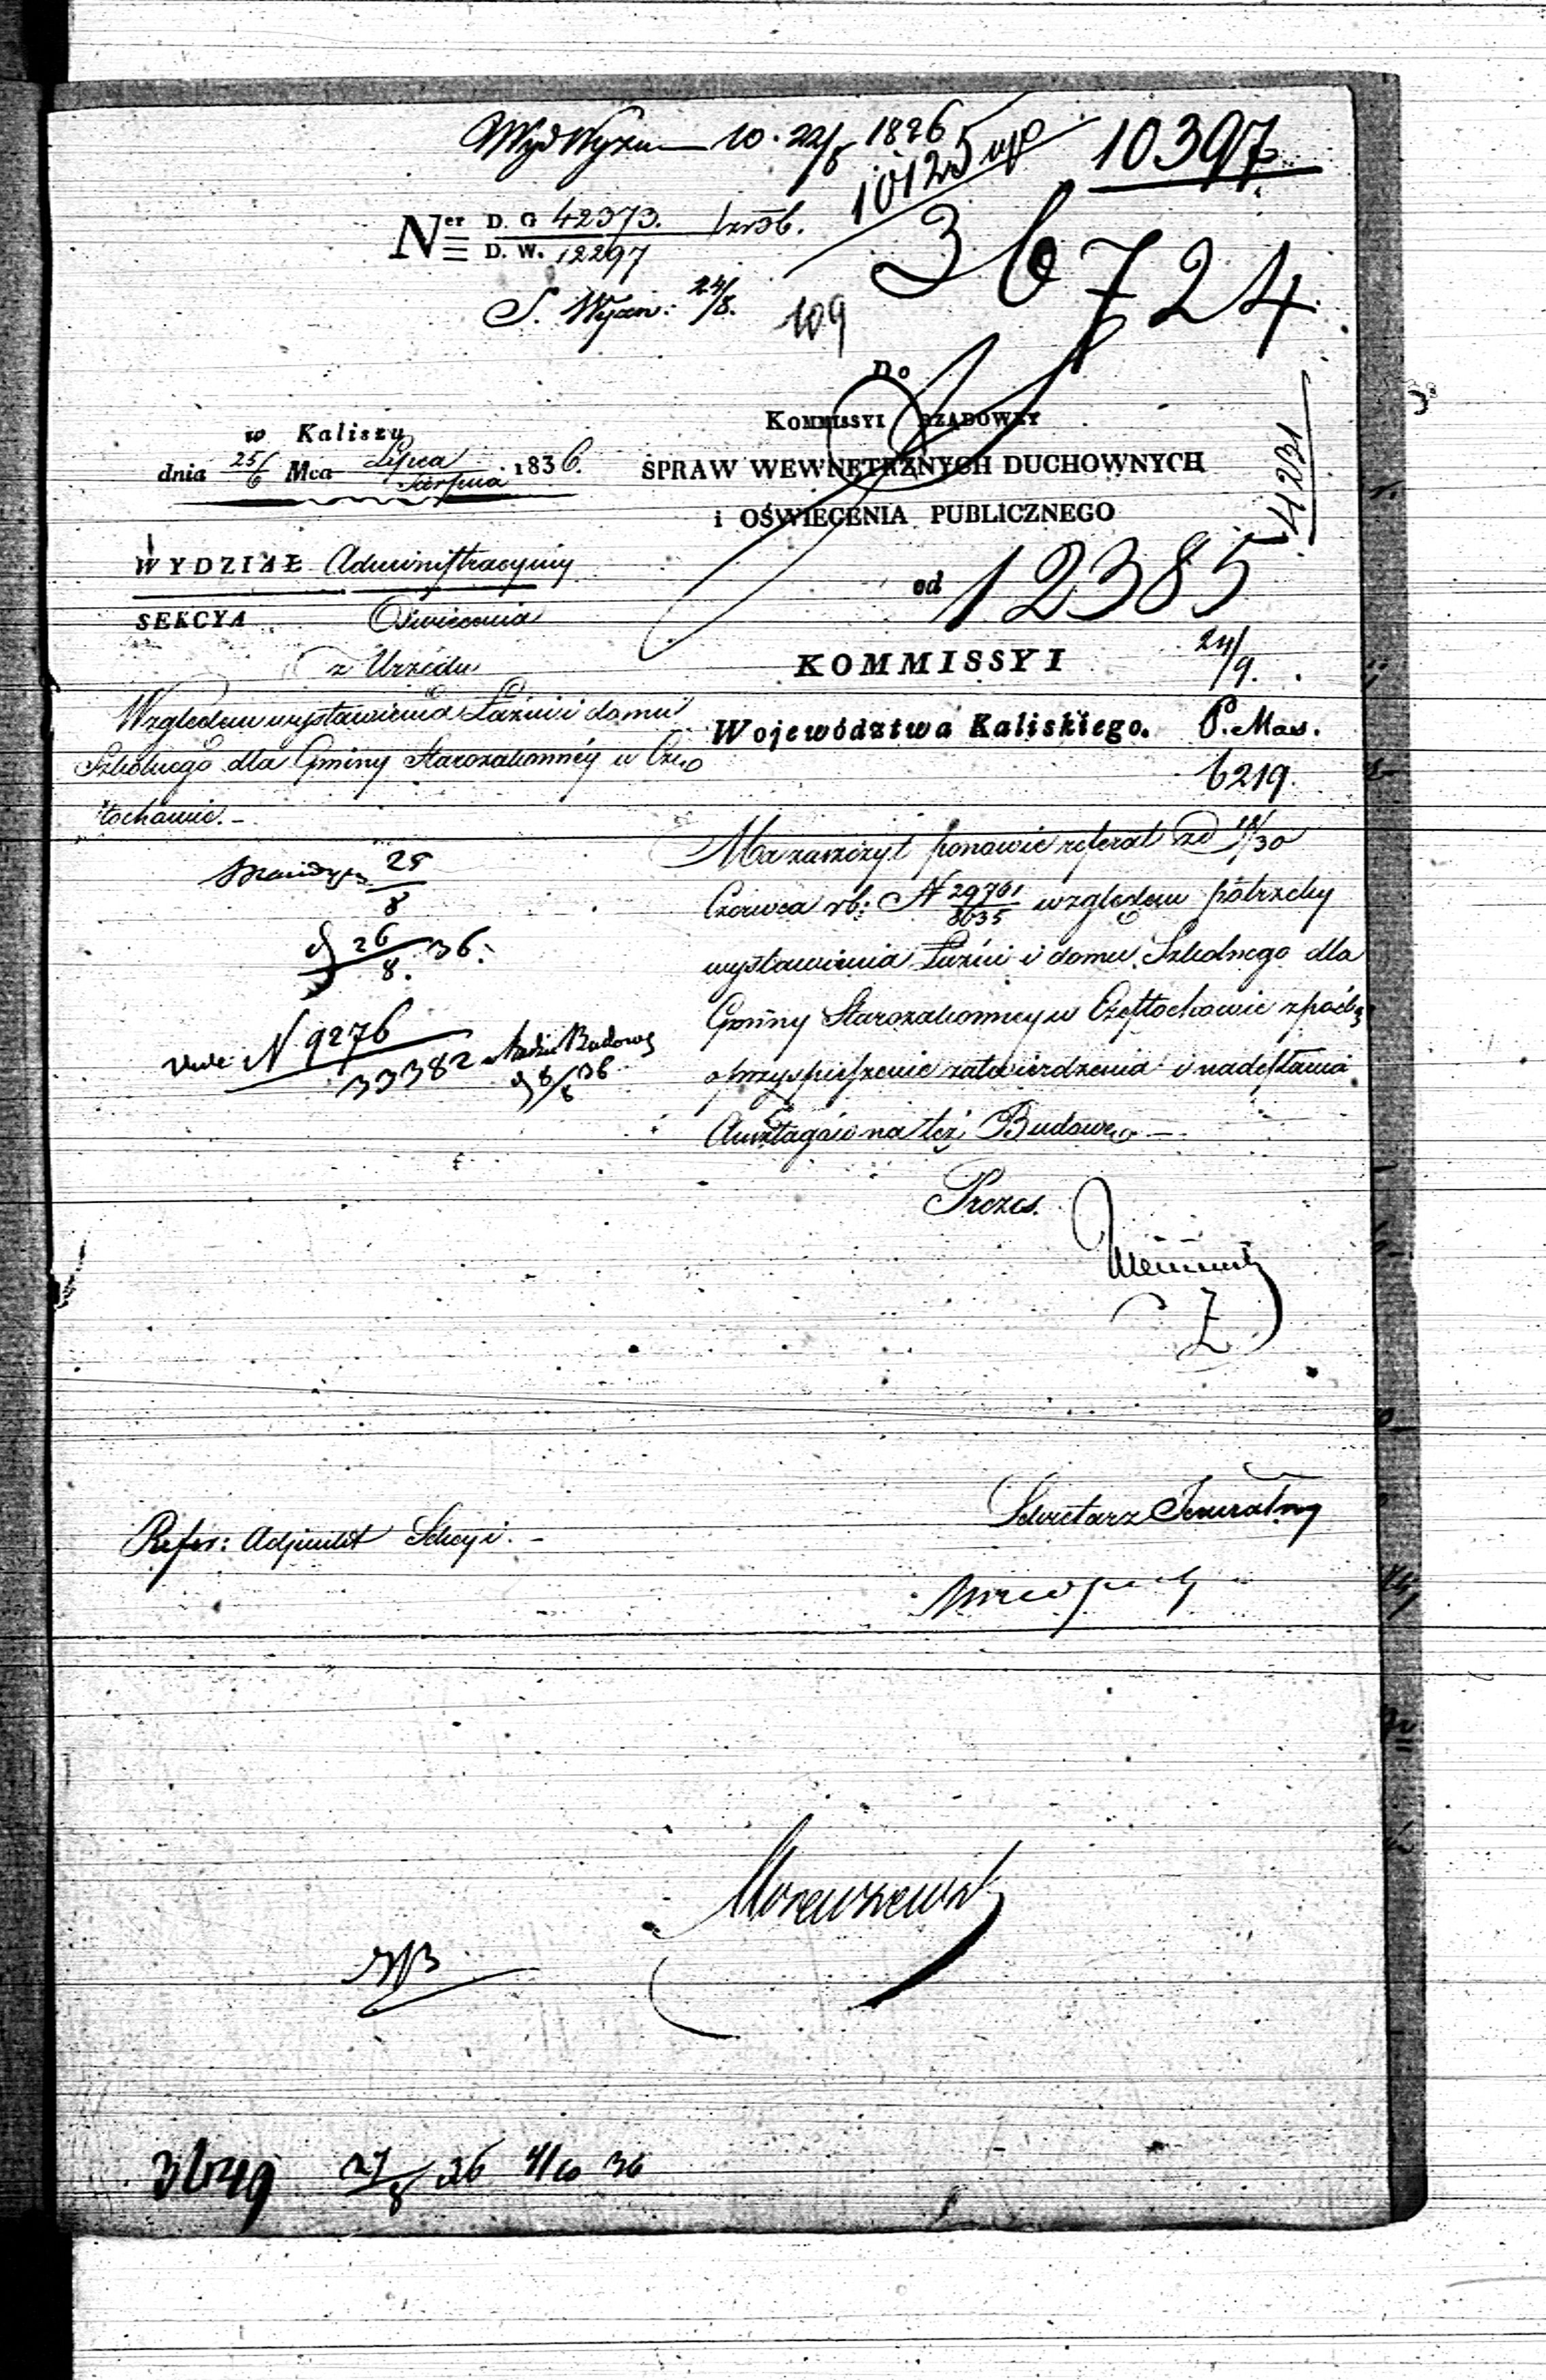 10. 22/8 1836
10125
10397
Ner D. G 42373.
D. W. 12297
36724
S. Wyzn: 24/8.
109
Do
KOMMISSYI RZĄDOWEY
SPRAW WEWNĘTRZNYCH DUCHOWNYCH
i OŚWIECENIA PUBLICZNEGO
4231
w Kaliszu
dnia 25/6 Mca Lipca/Sierpnia 1836.
WYDZIAŁ Administracyiny
SEKCYA Oświecenia
z Urzędu
od 12385
KOMMISSYI
24/9.
Województwa Kaliskiego.
P. Maw.
6219.
Względem wystawienia Łaźni i domu
Szkolnego dla Gminy Starozakonnéy w Czę
stochowie.-
25/8
26/8. 36.
Vide N 9276
33382
Budowy
8/8 36
Ma zaszczyt ponowić referat z d 18/30
Czerwca rb: N 29761/8635 względem potrzeby
wystawienia Łaźni i domu Szkolnego dla
Gminy Starozakonney w Częstochowie z prośbą
o przyspieszenie zatwierdzenia i nadesłania
Anszlagów na też Budowę.-
Prezes.
Sekretarz Jeneralny
Refer: Adjunkt Sekcyi.-
27/8 36 4/10 36